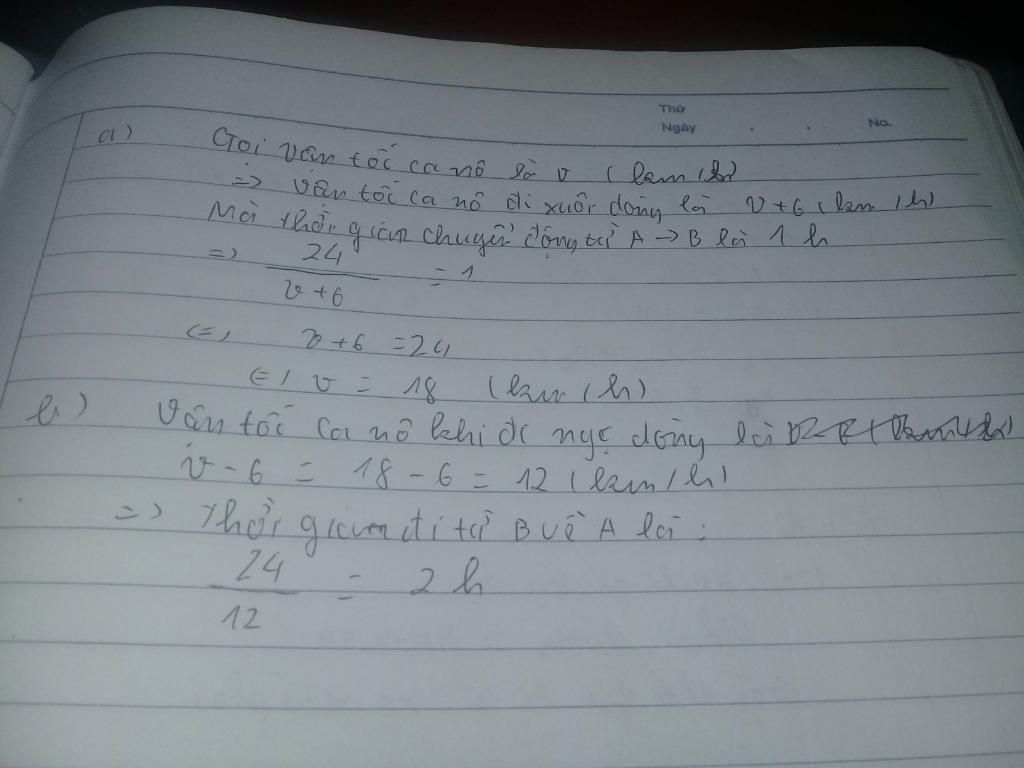 Thứ
Ngày . . No.
a) Gọi vận tốc ca nô là v (km/h)
=> vận tốc ca nô đi xuôi dòng là v+6 (km/h)
Mà thời gian chuyển động từ A → B là 1 h
=> 24 / v+6 = 1
<=> v+6 = 24
<=> v = 18 (km/h)
b) Vận tốc ca nô khi đi ngc dòng là
v - 6 = 18 - 6 = 12 (km/h)
=> thời gian đi từ B về A là :
24 / 12 = 2 h